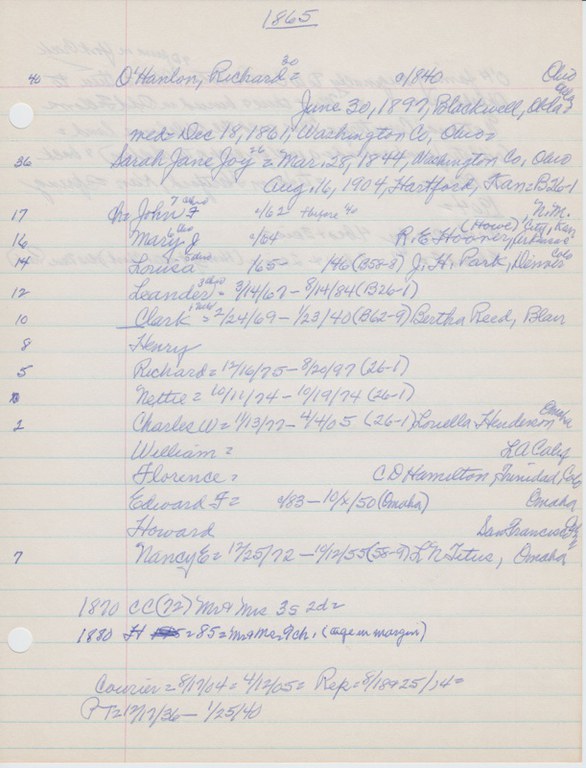 1865
40 O'Hanlon, Richard 30 = c/1840 Ohio
June 30, 1897, Blackwell, Okla
med Dec 18, 1861, Washington Co, Ohio
36 Sarah Jane Joy 26 = Mar. 28, 1844, Washington Co, Ohio
Aug. 16, 1904, Hartford, Kan = B26-1
17 Ch = John F c/62 40 N.M.
16 Mary J c/64 R.E. Hooner (Howe) City, Kan
14 Louisa 1/65 - 1/46 (B58-8) J. H. Park, Denver Colo
12 Leander = 3/14/67 - 8/14/84 (B26-1)
10 Clark = 2/24/69 - 1/23/40 (B62-9) Bertha Reed, Blair
8 Henry
5 Richard = 12/16/75 - 8/20/97 (26-1)
Nettie = 10/11/74 - 10/19/74 (26-1)
2 Charles W = 11/13/77 - 4/4/05 (26-1) Louella Henderson
William = L A Caley
Florence = C D Hamilton Trinidad Colo
Edward F = c/83 - 10/x/50 (Omaha) Omaha
Howard San Francisco
7 Nancy E = 12/25/72 - 10/12/55 (58-9) L N Titus, Omaha
1870 CC (72) Mr & Mrs 3s 2d =
1880 H = 85 = Mr & Mrs 9ch. (age in margin)
Courier = 8/17/04 = 4/12/05 = Rep = 8/18 & 25/14 =
PT = 12/17/36 - 1/25/40